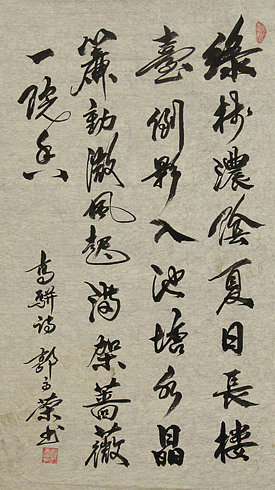 綠樹濃陰夏日長樓
臺倒影入池塘水晶
簾動微風起滿架薔薇
一院香
高駢詩 郭子榮书